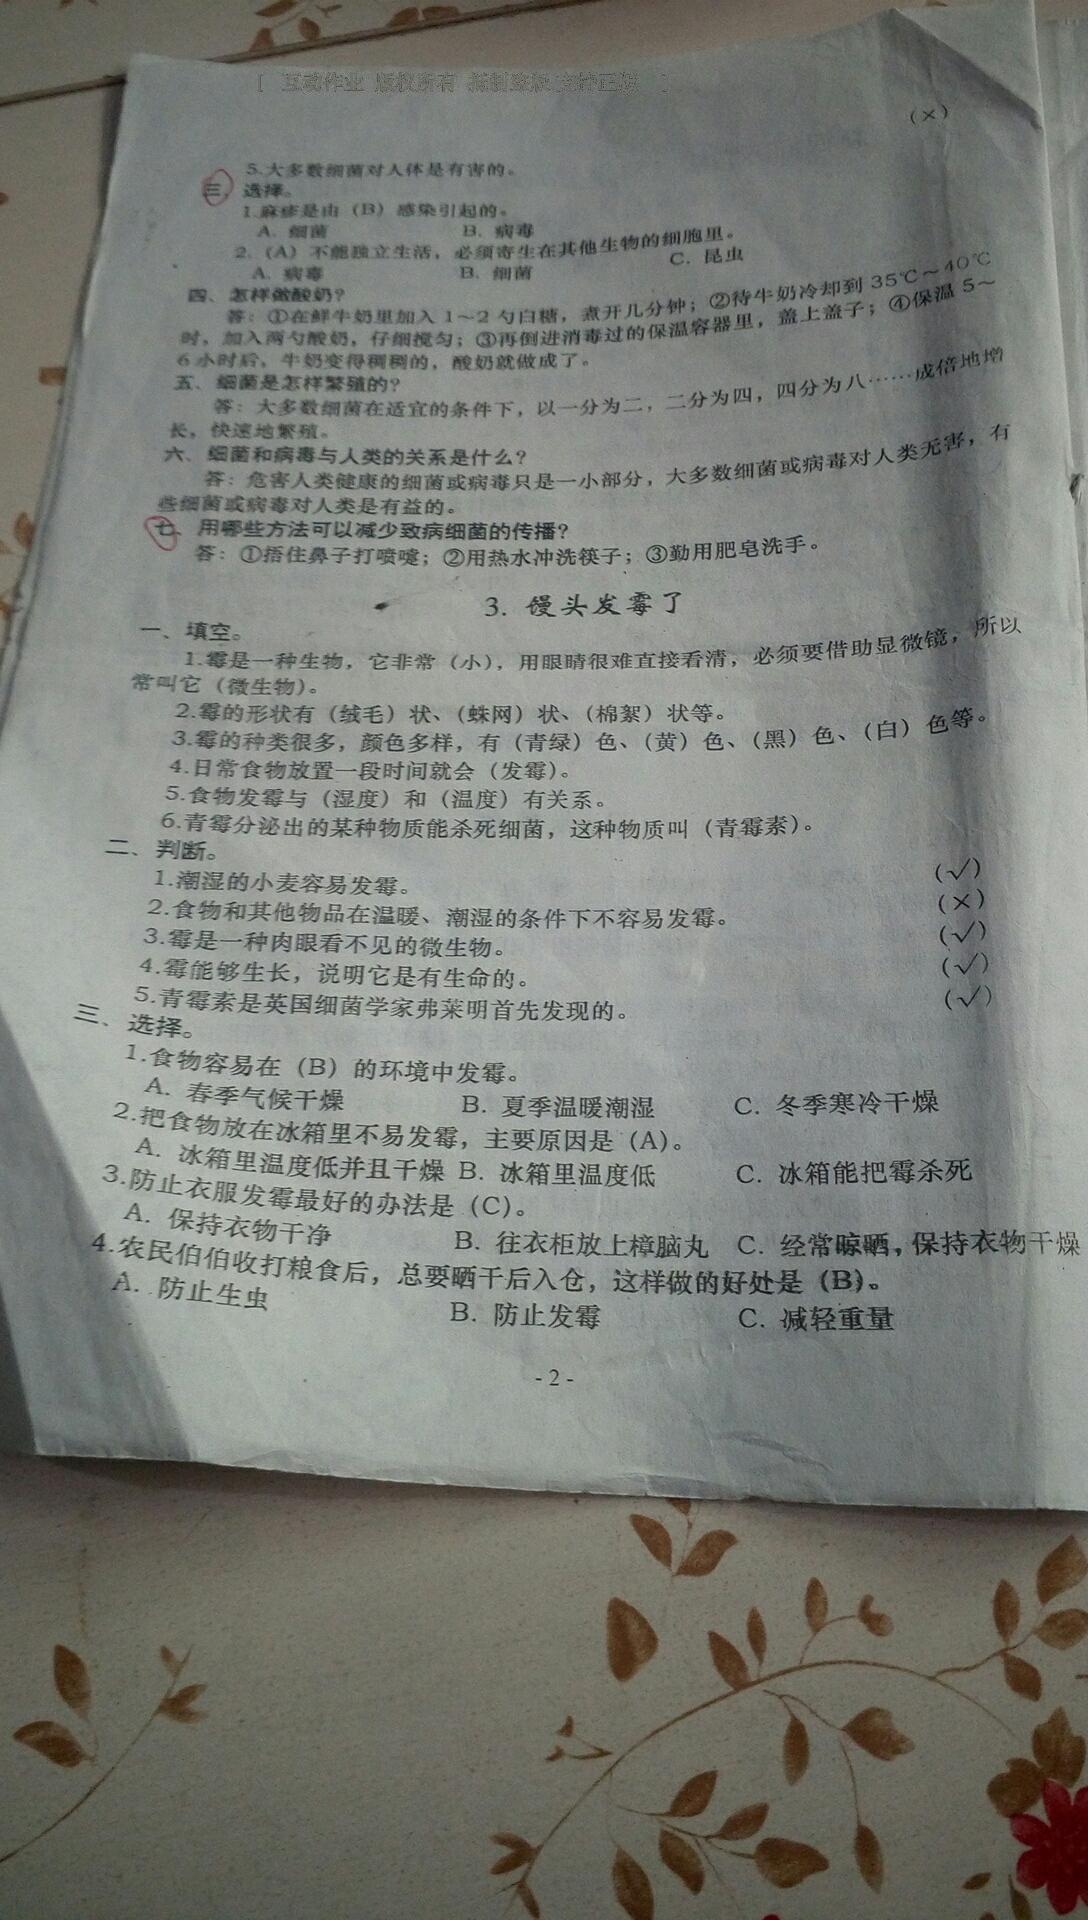 [ 互动作业 版权所有 抵制盗版 支持正版 ]
(×)
5.大多数细菌对人体是有害的。
三、选择。
1.麻疹是由(B)感染引起的。
A. 细菌 B. 病毒
2.(A)不能独立生活,必须寄生在其他生物的细胞里。
A. 病毒 B. 细菌 C. 昆虫
四、怎样做酸奶?
答:①在鲜牛奶里加入1~2勺白糖,煮开几分钟;②待牛奶冷却到35℃~40℃
时,加入两勺酸奶,仔细搅匀;③再倒进消毒过的保温容器里,盖上盖子;④保温5~
6小时后,牛奶变得稠稠的,酸奶就做成了。
五、细菌是怎样繁殖的?
答:大多数细菌在适宜的条件下,以一分为二,二分为四,四分为八……成倍地增
长,快速地繁殖。
六、细菌和病毒与人类的关系是什么?
答:危害人类健康的细菌或病毒只是一小部分,大多数细菌或病毒对人类无害,有
些细菌或病毒对人类是有益的。
七、用哪些方法可以减少致病细菌的传播?
答:①捂住鼻子打喷嚏;②用热水冲洗筷子;③勤用肥皂洗手。
3. 馒头发霉了
一、填空。
1.霉是一种生物,它非常(小),用眼睛很难直接看清,必须要借助显微镜,所以
常叫它(微生物)。
2.霉的形状有(绒毛)状、(蛛网)状、(棉絮)状等。
3.霉的种类很多,颜色多样,有(青绿)色、(黄)色、(黑)色、(白)色等。
4.日常食物放置一段时间就会(发霉)。
5.食物发霉与(湿度)和(温度)有关系。
6.青霉分泌出的某种物质能杀死细菌,这种物质叫(青霉素)。
二、判断。
1.潮湿的小麦容易发霉。 (√)
2.食物和其他物品在温暖、潮湿的条件下不容易发霉。 (×)
3.霉是一种肉眼看不见的微生物。 (√)
4.霉能够生长,说明它是有生命的。 (√)
5.青霉素是英国细菌学家弗莱明首先发现的。 (√)
三、选择。
1.食物容易在(B)的环境中发霉。
A. 春季气候干燥 B. 夏季温暖潮湿 C. 冬季寒冷干燥
2.把食物放在冰箱里不易发霉,主要原因是(A)。
A. 冰箱里温度低并且干燥 B. 冰箱里温度低 C. 冰箱能把霉杀死
3.防止衣服发霉最好的办法是(C)。
A. 保持衣物干净 B. 往衣柜放上樟脑丸 C. 经常晾晒,保持衣物干燥
4.农民伯伯收打粮食后,总要晒干后入仓,这样做的好处是(B)。
A. 防止生虫 B. 防止发霉 C. 减轻重量
- 2 -